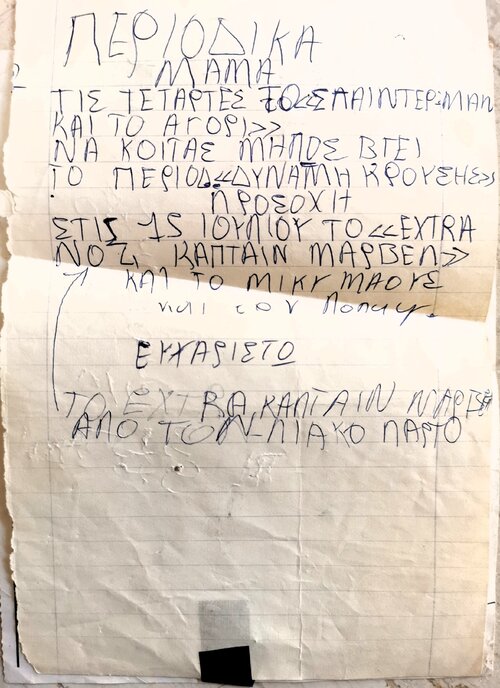 ΠΕΡΙΟΔΙΚΑ
ΜΑΜΑ
ΤΙΣ ΤΕΤΑΡΤΕΣ ΤΟ «ΣΠΑΙΝΤΕΡ-ΜΑΝ
ΚΑΙ ΤΟ ΑΓΟΡΙ»
ΝΑ ΚΟΙΤΑΣ ΜΗΠΟΣ ΒΓΕΙ
ΤΟ ΠΕΡΙΟΔ. «ΔΥΝΑΜΗ ΚΡΟΥΣΗΣ»
ΠΡΟΣΟΧΗ
ΣΤΙΣ 15 ΙΟΥΛΙΟΥ ΤΟ «EXTRA
ΝΟ 4 ΚΑΠΤΑΙΝ ΜΑΡΒΕΛ»
ΚΑΙ ΤΟ ΜΙΚΥ ΜΑΟΥΣ
και τον Ποπαι.
ΕΥΧΑΡΙΣΤΟ
ΤΟ EXTRA ΚΑΠΤΑΙΝ ΜΑΡΒΕΛ
ΑΠΟ ΤΟΝ ΛΙΑΚΟ ΠΑΡΤΟ